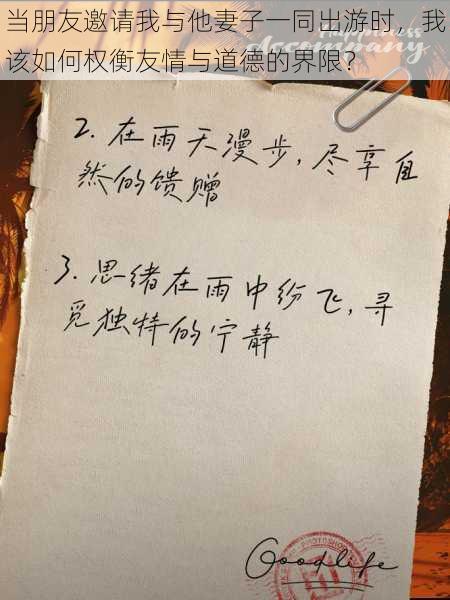 当朋友邀请我与他妻子一同出游时，我
该如何权衡友情与道德的界限？
Happiness
accompany
2. 在雨天漫步，尽享自
然的馈赠
3. 思绪在雨中纷飞，寻
觅独特的宁静
Goodlife